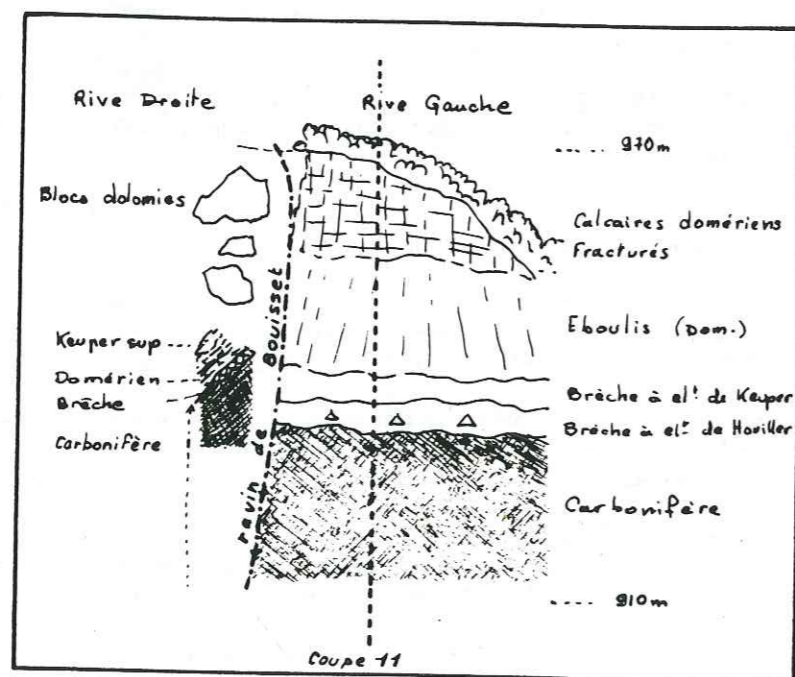 Rive Droite
Rive Gauche
970m
Blocs dolomies
Calcaires domériens
Fracturés
ravin de Bouisset
Eboulis (Dom.)
Keuper sup
Domérien
Brêche
Carbonifère
Brèche à elt de Keuper
Brèche à elt de Houiller
Carbonifère
910m
Coupe 11